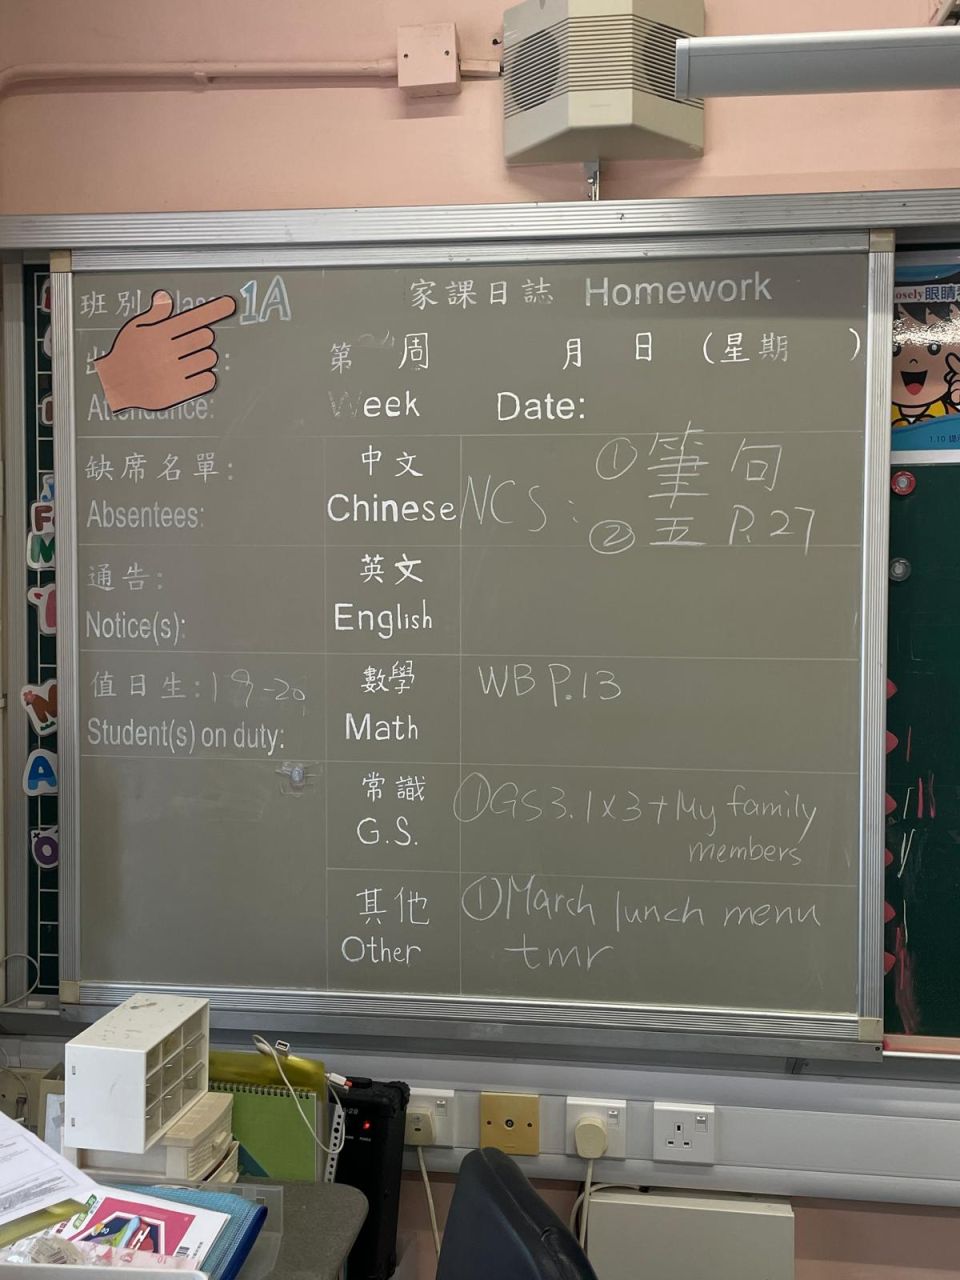 班別 Class 1A
家課日誌 Homework
第 周 月 日 (星期 )
Attendance: Week Date:
缺席名單:
Absentees:
中文
Chinese
NCS: ① 筆 句
② 五 P.27
通告:
Notice(s):
英文
English
值日生: 19-20
Student(s) on duty:
數學
Math
WB P.13
常識
G.S.
①GS3.1x3+My family
members
其他
Other
①March lunch menu
tmr
osely眼睛
1.10
F
M
T
N
A